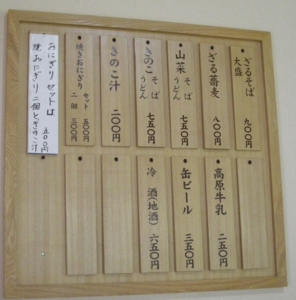 ざるそば
大盛
九〇〇円
ざる蕎麦
八〇〇円
山菜 そば
うどん
七五〇円
きのこ そば
うどん
七五〇円
きのこ汁
二〇〇円
焼きおにぎり セット 五〇〇円
二個 三〇〇円
おにぎりセットは
焼おにぎり二個ときのこ汁
五〇〇円
高原牛乳
二五〇円
缶ビール
三五〇円
冷酒(地酒)
六五〇円